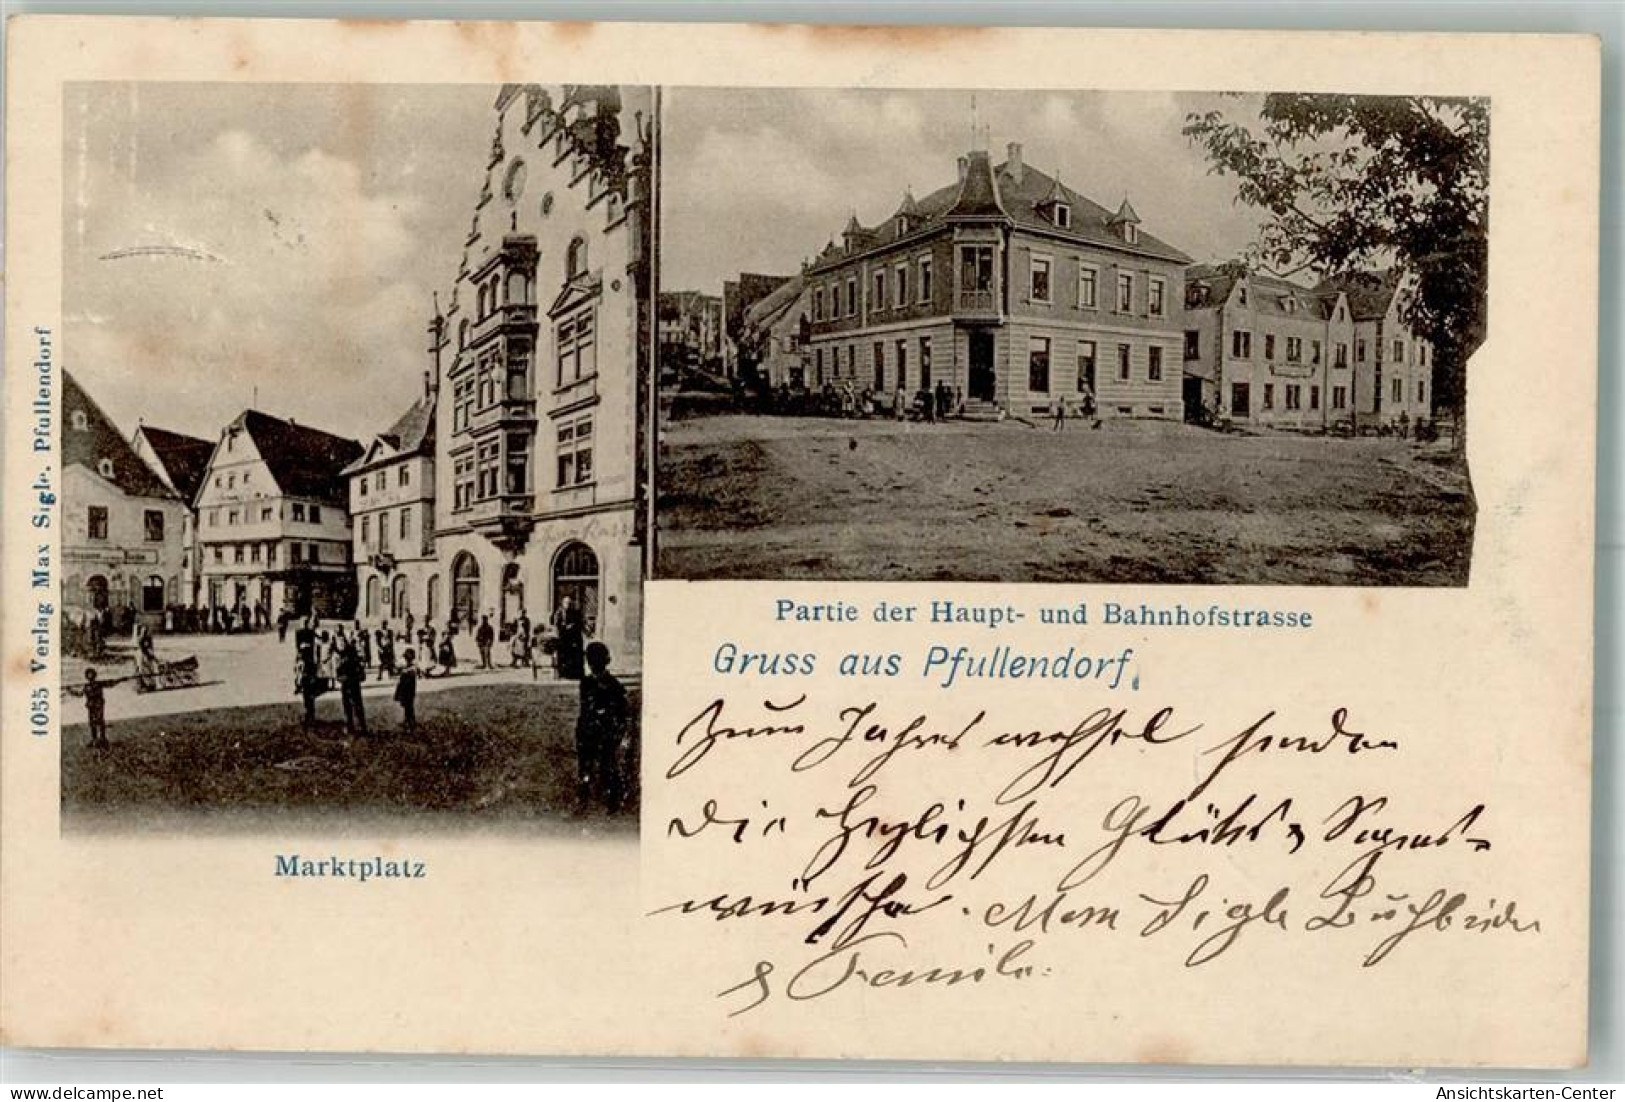 1055 Verlag Max Sigle. Pfullendorf
Marktplatz
Partie der Haupt- und Bahnhofstrasse
Gruss aus Pfullendorf.
Zum Jahreswechsel senden
die herzlichsten Glücks & Segens-
wünsche. Max Sigle Buchbinder
& Familie.
delcampe.net
Ansichtskarten-Center